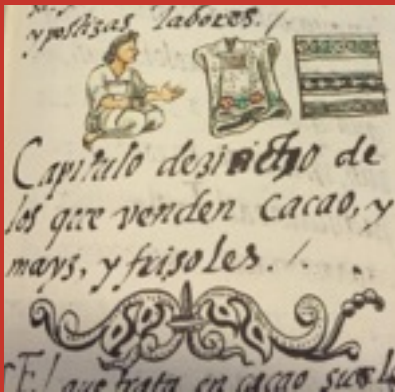 y postizas labores. /
Capitulo dezi ocho de
los que venden cacao, y
mays, y frisoles. /. .
El que trata en cacao suele